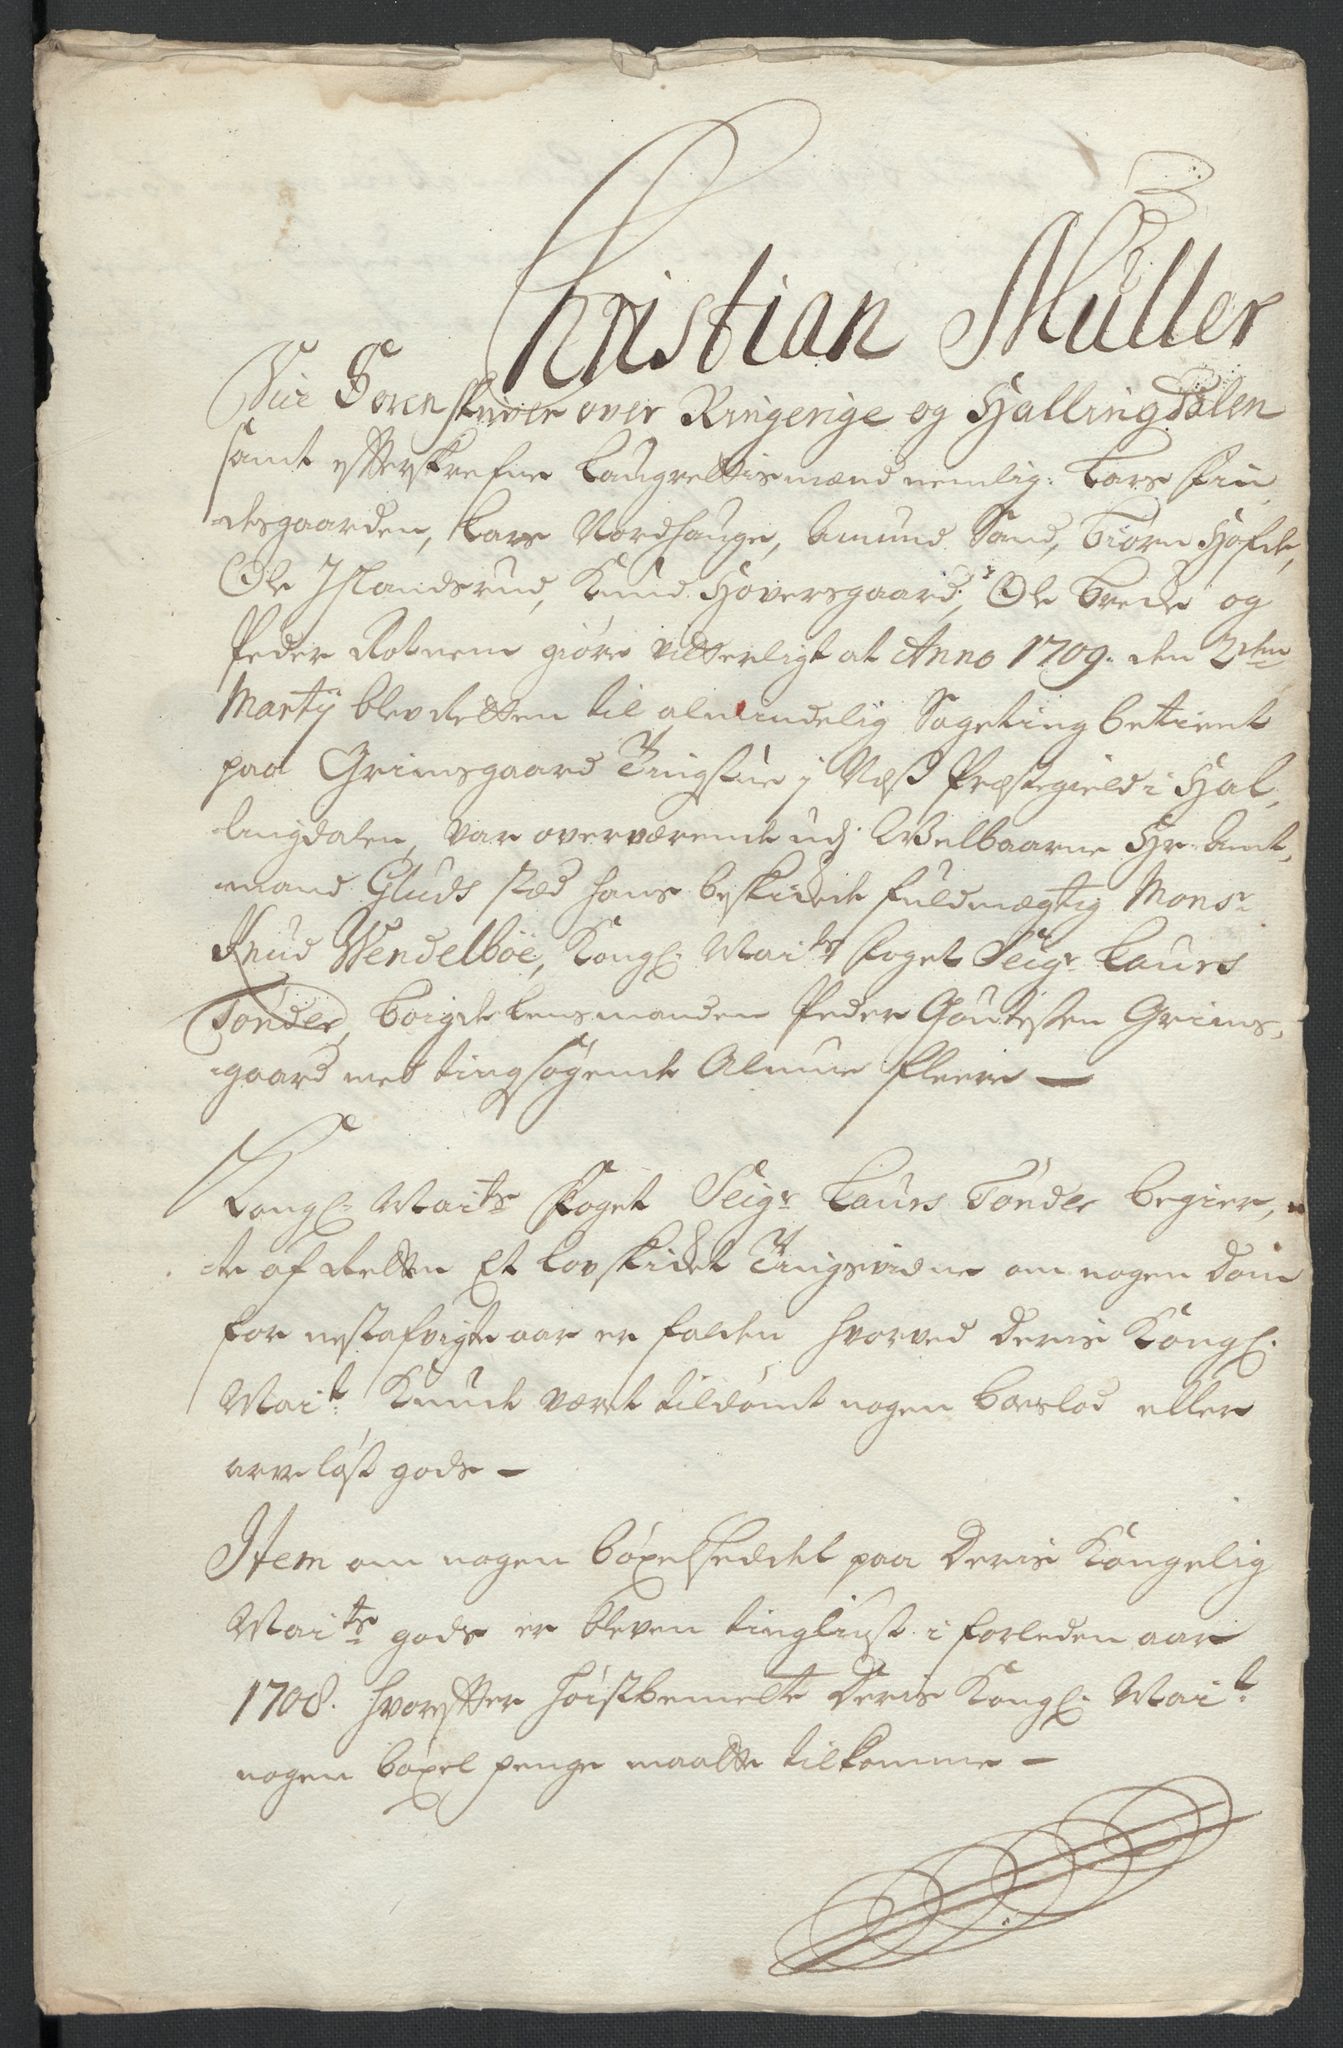 Christian Müller
Vice Sorenskriver over Ringerige og Hallingdalen
samt efterskrefne Laugrettismænd nemlig: Lars Sun
desgaarden, Lars Nordhauge, Amund Sand, Biørn Hofde,
Ole Islandsrud, Knud Hoversgaard, Ole Brede og
Peder Rotnem giøre vitterligt at Anno 1709. den 2den
Martij blev Retten til almindelig Sageting betient
paa Grimsgaard Tingstue j Næss Præstegield i Hal,
lingdalen, var overværende udj Welbaarne Hr. Amt,
mand Gluds sted hans beskikkede fuldmægtig Monsr
Knud Wendelboe, Kongl: Maits foget Seigr Laurs
Tønder, boigde Lensmanden Peder Goutesen Grims,
gaard med tingsøgende Almue fleere —
Kongl: Maits foget Seigr Laurs Tønder begier,
te af Retten Et lovskicket Tingsvidne om nogen Dom
for nestafvigte aar er falden hvorved Deris Kongl.
Mait: Kunde været tildømt nogen boeslod eller
arveløst gods —
Item om nogen bøxelseddel paa Deris Kongelig
Maits gods er bleven tingliust i forleden aar
1708. hvorefter høistbemelte Deris Kongl. Mait:
nogen bøxel penge maatte tilkomme —